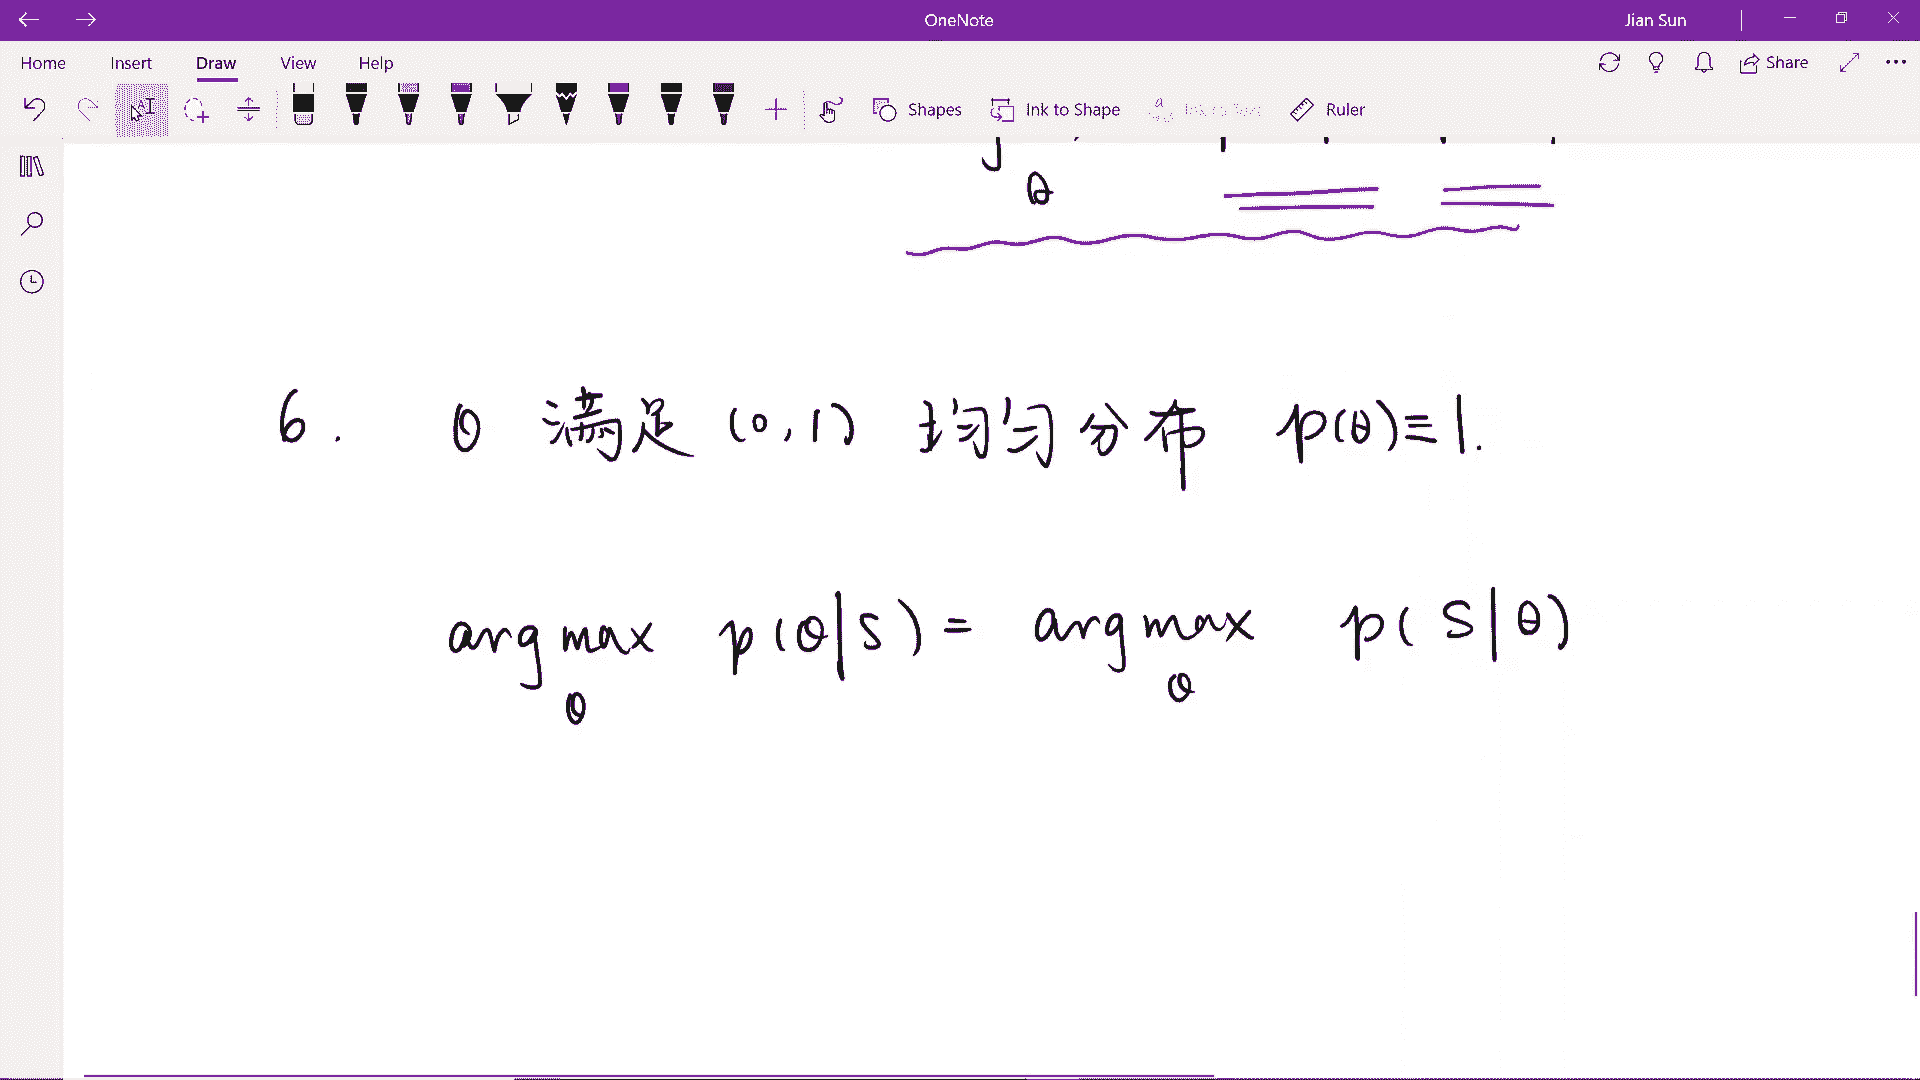 OneNote
Jian Sun
Home Insert Draw View Help
Share
Shapes Ink to Shape Ink to Text Ruler
θ
6. θ 满足 (0,1) 均匀分布 p(θ)≡1.
arg max p(θ|S) = arg max p(S|θ)
θ θ